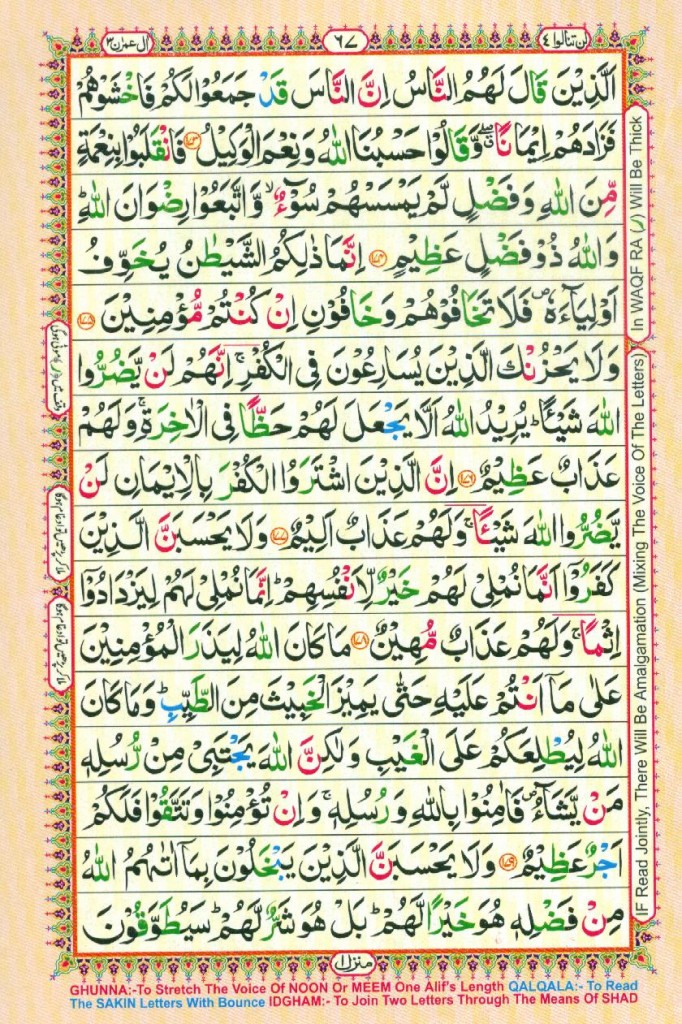 لن تنالوا ٤
٦٧
ال عمرٰن ٣
اَلَّذِيْنَ قَالَ لَهُمُ النَّاسُ اِنَّ النَّاسَ قَدْ جَمَعُوْا لَكُمْ فَاخْشَوْهُمْ
فَزَادَهُمْ اِيْمَانًا ۖ وَّقَالُوْا حَسْبُنَا اللّٰهُ وَنِعْمَ الْوَكِيْلُ ﴿١٧٣﴾ فَانْقَلَبُوْا بِنِعْمَةٍ
مِّنَ اللّٰهِ وَفَضْلٍ لَّمْ يَمْسَسْهُمْ سُوْٓءٌ ۙ وَّاتَّبَعُوْا رِضْوَانَ اللّٰهِ ؕ
وَاللّٰهُ ذُوْ فَضْلٍ عَظِيْمٍ ﴿١٧٤﴾ اِنَّمَا ذٰلِكُمُ الشَّيْطٰنُ يُخَوِّفُ
اَوْلِيَآءَهٗ ۪ فَلَا تَخَافُوْهُمْ وَخَافُوْنِ اِنْ كُنْتُمْ مُّؤْمِنِيْنَ ﴿١٧٥﴾
وَلَا يَحْزُنْكَ الَّذِيْنَ يُسَارِعُوْنَ فِى الْكُفْرِ ۚ اِنَّهُمْ لَنْ يَّضُرُّوا
اللّٰهَ شَيْـًٔا ؕ يُرِيْدُ اللّٰهُ اَلَّا يَجْعَلَ لَهُمْ حَظًّا فِى الْاٰخِرَةِ ۚ وَلَهُمْ
عَذَابٌ عَظِيْمٌ ﴿١٧٦﴾ اِنَّ الَّذِيْنَ اشْتَرَوُا الْكُفْرَ بِالْاِيْمَانِ لَنْ
يَّضُرُّوا اللّٰهَ شَيْـًٔا ۚ وَلَهُمْ عَذَابٌ اَلِيْمٌ ﴿١٧٧﴾ وَلَا يَحْسَبَنَّ الَّذِيْنَ
كَفَرُوْٓا اَنَّمَا نُمْلِىْ لَهُمْ خَيْرٌ لِّاَنْفُسِهِمْ ؕ اِنَّمَا نُمْلِىْ لَهُمْ لِيَزْدَادُوْٓا
اِثْمًا ۚ وَلَهُمْ عَذَابٌ مُّهِيْنٌ ﴿١٧٨﴾ مَا كَانَ اللّٰهُ لِيَذَرَ الْمُؤْمِنِيْنَ
عَلٰى مَآ اَنْتُمْ عَلَيْهِ حَتّٰى يَمِيْزَ الْخَبِيْثَ مِنَ الطَّيِّبِ ؕ وَمَا كَانَ
اللّٰهُ لِيُطْلِعَكُمْ عَلَى الْغَيْبِ وَلٰكِنَّ اللّٰهَ يَجْتَبِىْ مِنْ رُّسُلِهٖ
مَنْ يَّشَآءُ ۪ فَاٰمِنُوْا بِاللّٰهِ وَرُسُلِهٖ ۚ وَاِنْ تُؤْمِنُوْا وَتَتَّقُوْا فَلَكُمْ
اَجْرٌ عَظِيْمٌ ﴿١٧٩﴾ وَلَا يَحْسَبَنَّ الَّذِيْنَ يَبْخَلُوْنَ بِمَآ اٰتٰىهُمُ اللّٰهُ
مِنْ فَضْلِهٖ هُوَ خَيْرًا لَّهُمْ ؕ بَلْ هُوَ شَرٌّ لَّهُمْ ؕ سَيُطَوَّقُوْنَ
منزل ١
In WAQF RA (ر) Will Be Thick
IF Read Jointly, There Will Be Amalgamation (Mixing The Voice Of The Letters)
GHUNNA:-To Stretch The Voice Of NOON Or MEEM One Alif's Length QALQALA:- To Read
The SAKIN Letters With Bounce IDGHAM:- To Join Two Letters Through The Means Of SHAD